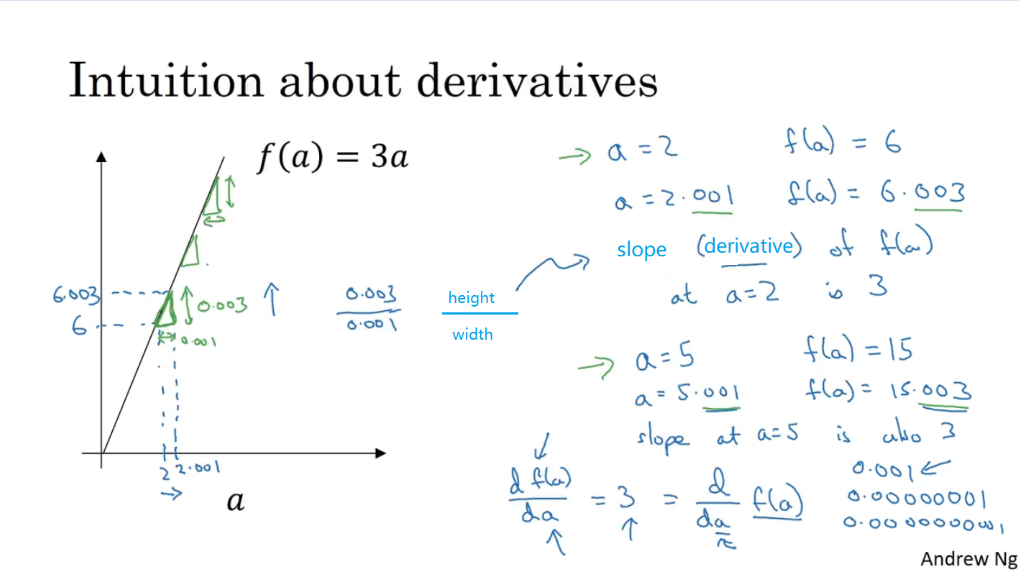 Intuition about derivatives
f(a) = 3a
6.003
6
0.003
0.001
2
2.001
a
0.003
0.001
height
width
a = 2 f(a) = 6
a = 2.001 f(a) = 6.003
slope (derivative) of f(a)
at a=2 is 3
a = 5 f(a) = 15
a = 5.001 f(a) = 15.003
slope at a=5 is also 3
d f(a)
da
= 3 =
d
da
f(a)
0.001
0.00000001
Andrew Ng